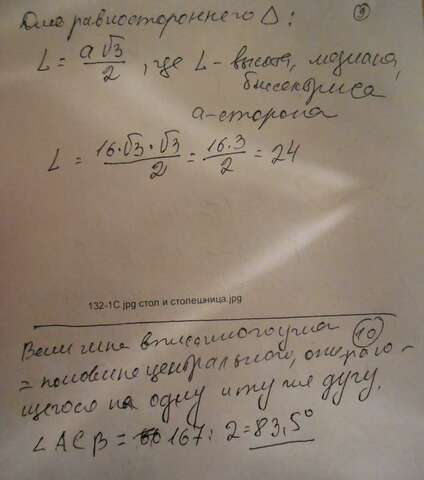 Для равностороннего Δ: (9)
L = a√3/2, где L - высота, медиана,
биссектриса
a-сторона
L = 16·√3·√3/2 = 16·3/2 = 24
132-1C.jpg стол и столешница.jpg
Величина вписанного угла (10)
= половине центрального, опираю-
щегося на одну и ту же дугу.
∠ACB = 167:2=83,5°